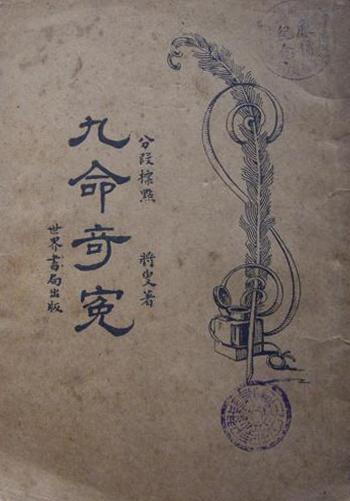 紀念
分段標點 將叟著
九命奇寃
世界書局出版